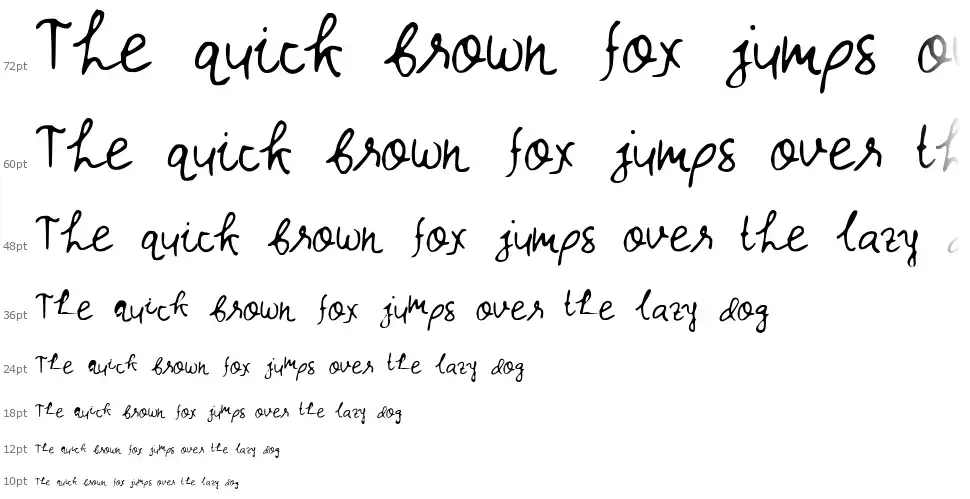 72pt The quick brown fox jumps ov
60pt The quick brown fox jumps over th
48pt The quick brown fox jumps over the lazy d
36pt The quick brown fox jumps over the lazy dog
24pt The quick brown fox jumps over the lazy dog
18pt The quick brown fox jumps over the lazy dog
12pt The quick brown fox jumps over the lazy dog
10pt The quick brown fox jumps over the lazy dog